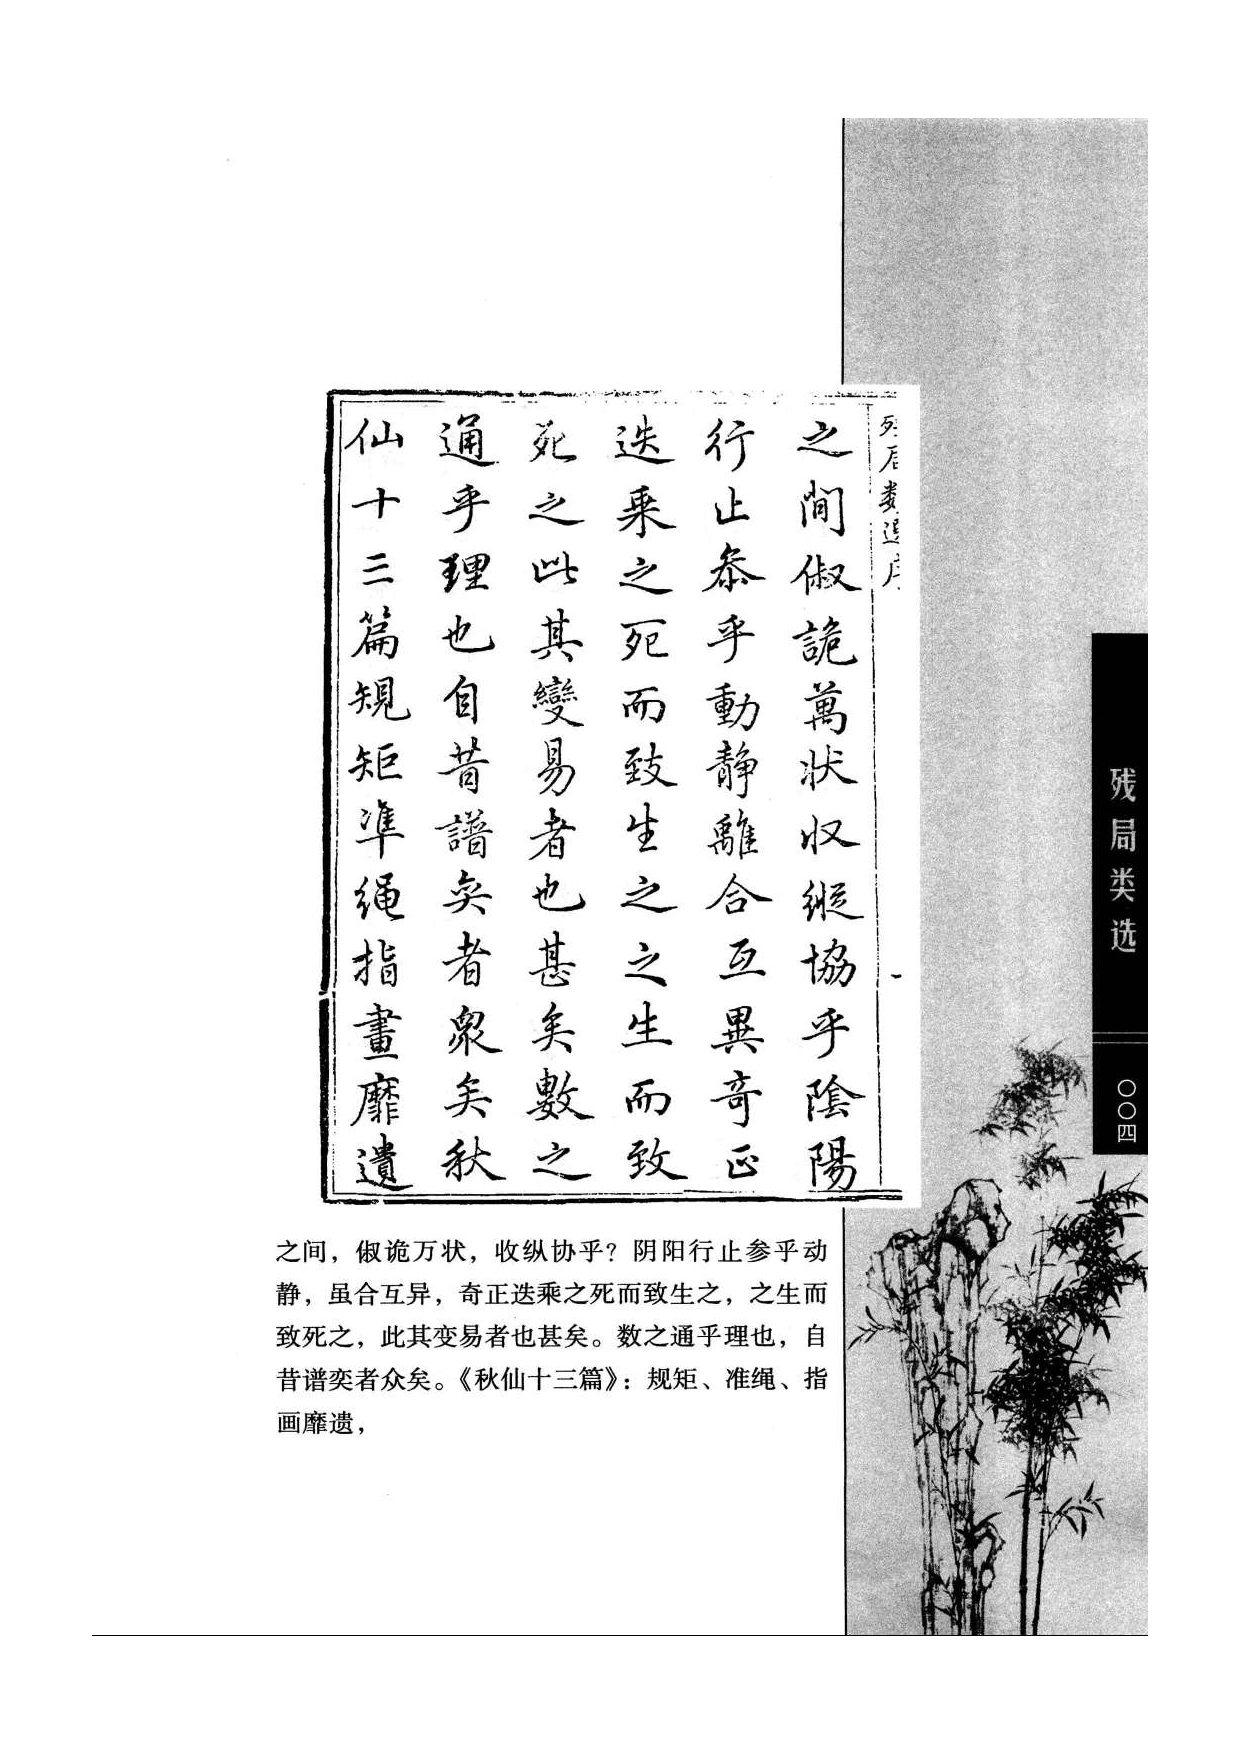 残局类选序
之間俶詭萬状収縱協乎陰陽
行止叅乎動静離合互異竒正
迭乗之死而致生之之生而致
死之此其變易者也甚矣數之
通乎理也自昔譜奕者衆矣秋
仙十三篇規矩凖绳指畫靡遺
一
残局类选
〇〇四
之间，俶诡万状，收纵协乎？阴阳行止参乎动
静，虽合互异，奇正迭乘之死而致生之，之生而
致死之，此其变易者也甚矣。数之通乎理也，自
昔谱奕者众矣。《秋仙十三篇》：规矩、准绳、指
画靡遗，